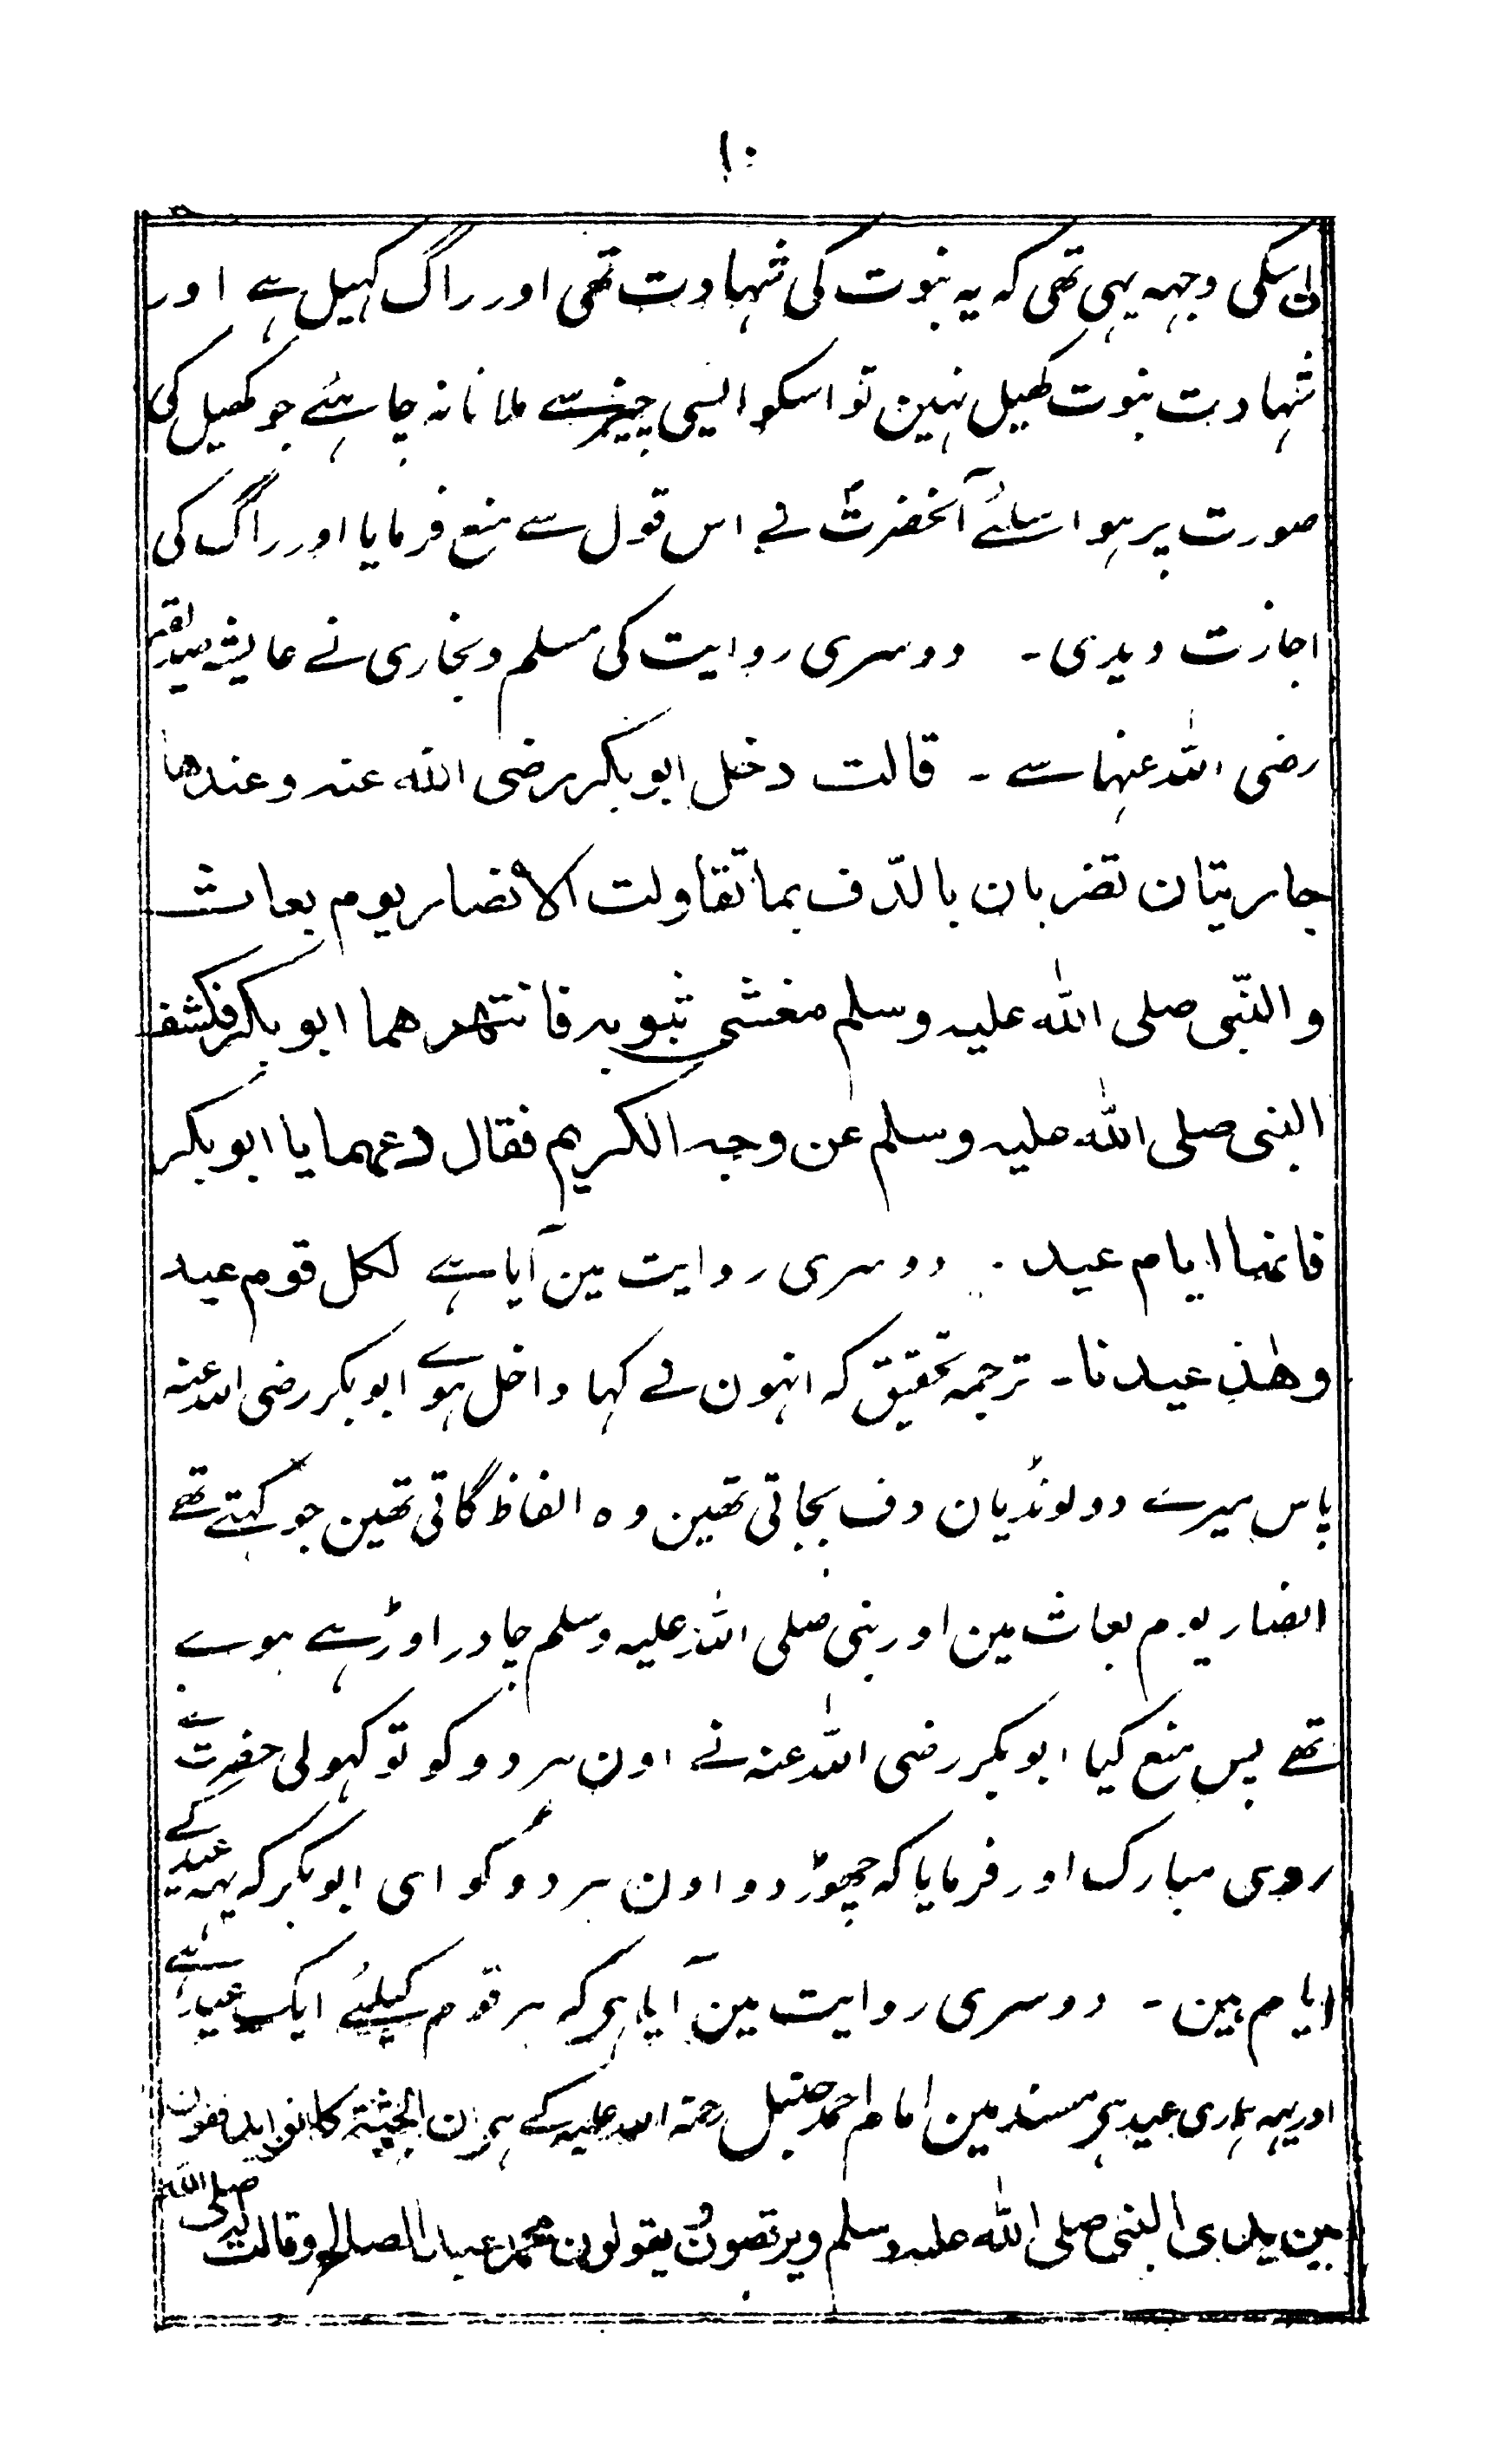 ١٠
اسکی وجہہ یہی تھی کہ یہ نبوت کی شہادت تھی اور راگ کہیل ہے اور
شہادت نبوت کھیل نہین تو اسکو ایسی چیز سے ملانا نہ چاہئے جو کھیل کی
صورت پر ہو اسلئے آنحضرتؐ نے اس قول سے منع فرمایا اور راگ کی
اجازت دیدی۔ دوسری روایت کی مسلم و بخاری نے عایشہ صدیقہ
رضی اللہ عنہما سے۔ قالت دخل ابوبکر رضی الله عنه وعندها
جاريتان تضربان بالدّف بما تقاولت الانصار يوم بعاث
والنّبی صلی الله علیه وسلم مغشی بثوبه فانتهرهما ابوبکر فکشف
النبی صلی الله علیه وسلم عن وجه الکریم فقال دعهما یا ابوبکر
فانها ایام عید. دوسری روایت مین آیا ہے لکل قوم عید
وهٰذ عیدنا۔ ترجمہ تحقیق کہ انہون نے کہا داخل ہوے ابوبکر رضی اللہ عنہ
پاس میرے دو لونڈیان دف بجاتی تھین وہ الفاظ گاتی تھین جو کہتے تھے
انصار یوم بعاث مین اور نبی صلی اللہ علیہ وسلم چادر اوڑہے ہوے
تھے پس منع کیا ابوبکر رضی اللہ عنہ نے اون ہر دو کو تو کہولی حضرت نے
روی مبارک اور فرمایا کہ چھوڑ دو اون ہر دو کو ای ابوبکر کہ یہہ عید کے
ایام ہین۔ دوسری روایت مین آیا ہی کہ ہر قوم کیلئے ایک عید ہے
اور یہہ ہماری عید ہی مسند مین امام احمد حنبل رحمۃ اللہ علیہ کے ہی ان الحبشة کانوا یدففون
بین یدی النبی صلی الله علیه وسلم ویرقصون یقولون محمد عبد الصالح وقالت